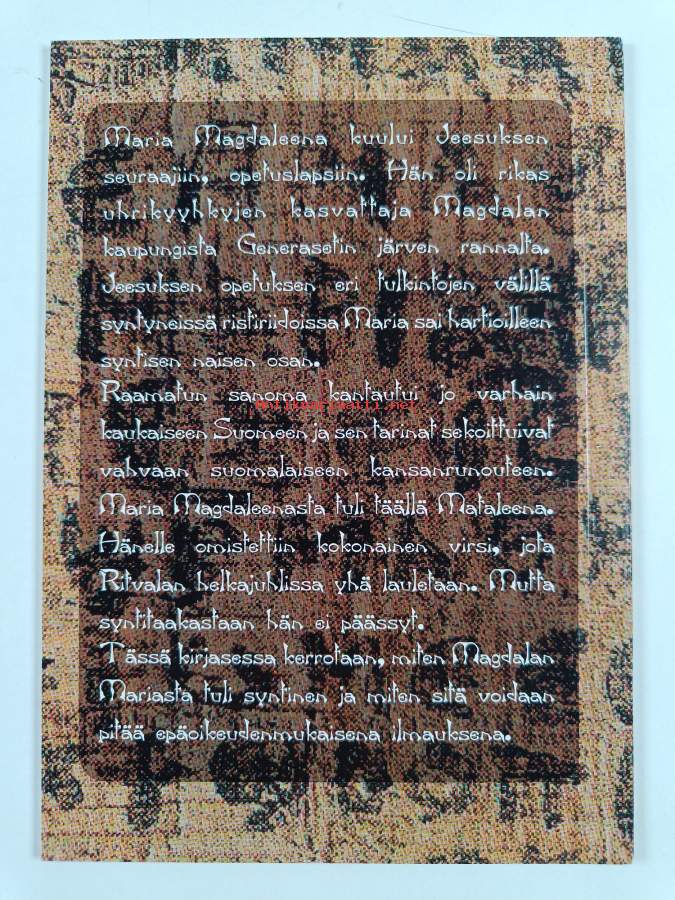 Maria Magdaleena kuului Jeesuksen
seuraajiin, opetuslapsiin. Hän oli rikas
uhrikyyhkyjen kasvattaja Magdalan
kaupungista Generasetin järven rannalta.
Jeesuksen opetuksen eri tulkintojen välillä
syntyneissä ristiriidoissa Maria sai hartioilleen
syntisen naisen osan.
Raamatun sanoma kantautui jo varhain
antikvariaatti.net
kaukaiseen Suomeen ja sen tarinat sekoittuivat
vahvaan suomalaiseen kansanrunouteen.
Maria Magdaleenasta tuli täällä Mataleena.
Hänelle omistettiin kokonainen virsi, jota
Ritvalan helkajuhlissa yhä lauletaan. Mutta
syntitaakastaan hän ei päässyt.
Tässä kirjasessa kerrotaan, miten Magdalan
Mariasta tuli syntinen ja miten sitä voidaan
pitää epäoikeudenmukaisena ilmauksena.